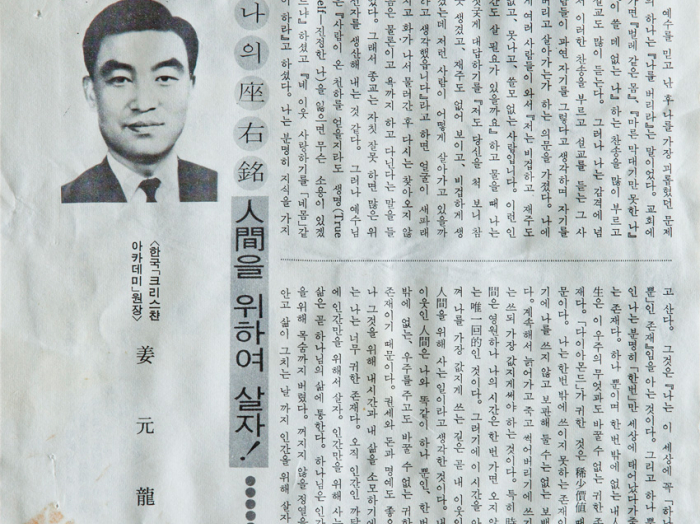 나의 座右銘
人間을 위하여 살자!
〈한국「크리스찬
아카데미」원장〉
姜元龍
예수를 믿고 난 후 나를 가장 괴롭혔던 문제
의 하나는 『나를 버리라』는 말이었다. 교회에
가면 『벌레 같은 몸』, 『마른 막대기만 못한 나』
『이 쓸 데 없는 나』 하는 찬송을 많이 부르고
설교도 많이 듣는다. 그러나 나는 감격에 넘
서 이러한 찬송을 부르고 설교를 듣는 그 사
람들이 과연 자기를 그렇다고 생각하며 자기를
버리고 살아가는가 하는 의문을 가졌다. 나에
게 여러 사람들이 와서 『저는 비겁하고 재주도
없고, 못나고, 쓸모 없는 사람입니다. 이런 인
간도 살 필요가 있을까요』 하고 물을 때 나는
짓궂게 대답하기를 『저도 당신을 척 보니 참
못 생겼고, 재주도 없어 보이고, 비겁하게 생
겼는데 저런 사람이 어떻게 살아가고 있을까
라고 생각했읍니다』라고 하면 얼굴이 새파래
지고 화가 나서 물러간 후 다시는 찾아오지 않
음은 물론이고 욕까지 하고 다닌다는 말을 들
었다. 그래서 종교는 자칫 잘못하면 많은 위
선자를 생산해 내는 것 같다. 그러나 예수님
은 『사람이 온 천하를 얻을지라도 생명(True
self―진정한 나)을 잃으면 무슨 소용이 있겠
느냐』 하셨고 『네 이웃 사랑하기를 「네 몸」같
이 하라』고 하셨다. 나는 분명히 지식을 가지
고 산다. 그것은 『나는 이 세상에 꼭 「하나
뿐」인 존재』임을 아는 것이다. 그리고 하나뿐
인 나는 분명히 「한번」만 세상에 태어났다가 죽
는 존재다. 하나 뿐이며 한번 밖에 없는 내
生은 이 우주의 무엇과도 바꿀 수 없는 귀한 존
재다. 「다이아몬드」가 귀한 것은 稀少價値 때
문이다. 나는 한번 밖에 쓰이지 못하는 존재
기에 나를 쓰지 않고 보관해 둘 수는 없는 보배
다. 계속해서 늙어가고 죽고 썩어버리기에 쓰기
는 쓰되 가장 값지게 써야 하는 것이다. 특히 時
間은 영원하나 나의 시간은 한번 가면 오지 않
는 唯一回的인 것이다. 그러기에 이 시간을 아
껴 나를 가장 값지게 쓰는 길은 곧 내 이웃인
人間을 위해 사는 일이라고 생각한 것이다. 내
이웃인 人間은 나와 똑같이 하나 뿐인, 한번
밖에 없는, 우주를 주고도 바꿀 수 없는 귀한
존재이기 때문이다. 권세와 돈과 명예도 좋으
나 그것을 위해 내 시간과 내 삶을 소모하기에
는 나는 너무 귀한 존재다. 오직 인간인 까닭
에 인간만을 위해서 살자. 인간만을 위해 사는
삶은 곧 하나님의 삶에 통한다. 하나님은 인간
을 위해 목숨까지 버렸다. 꺼지지 않을 정열을
안고 삶이 그치는 날까지 인간을 위해 살자